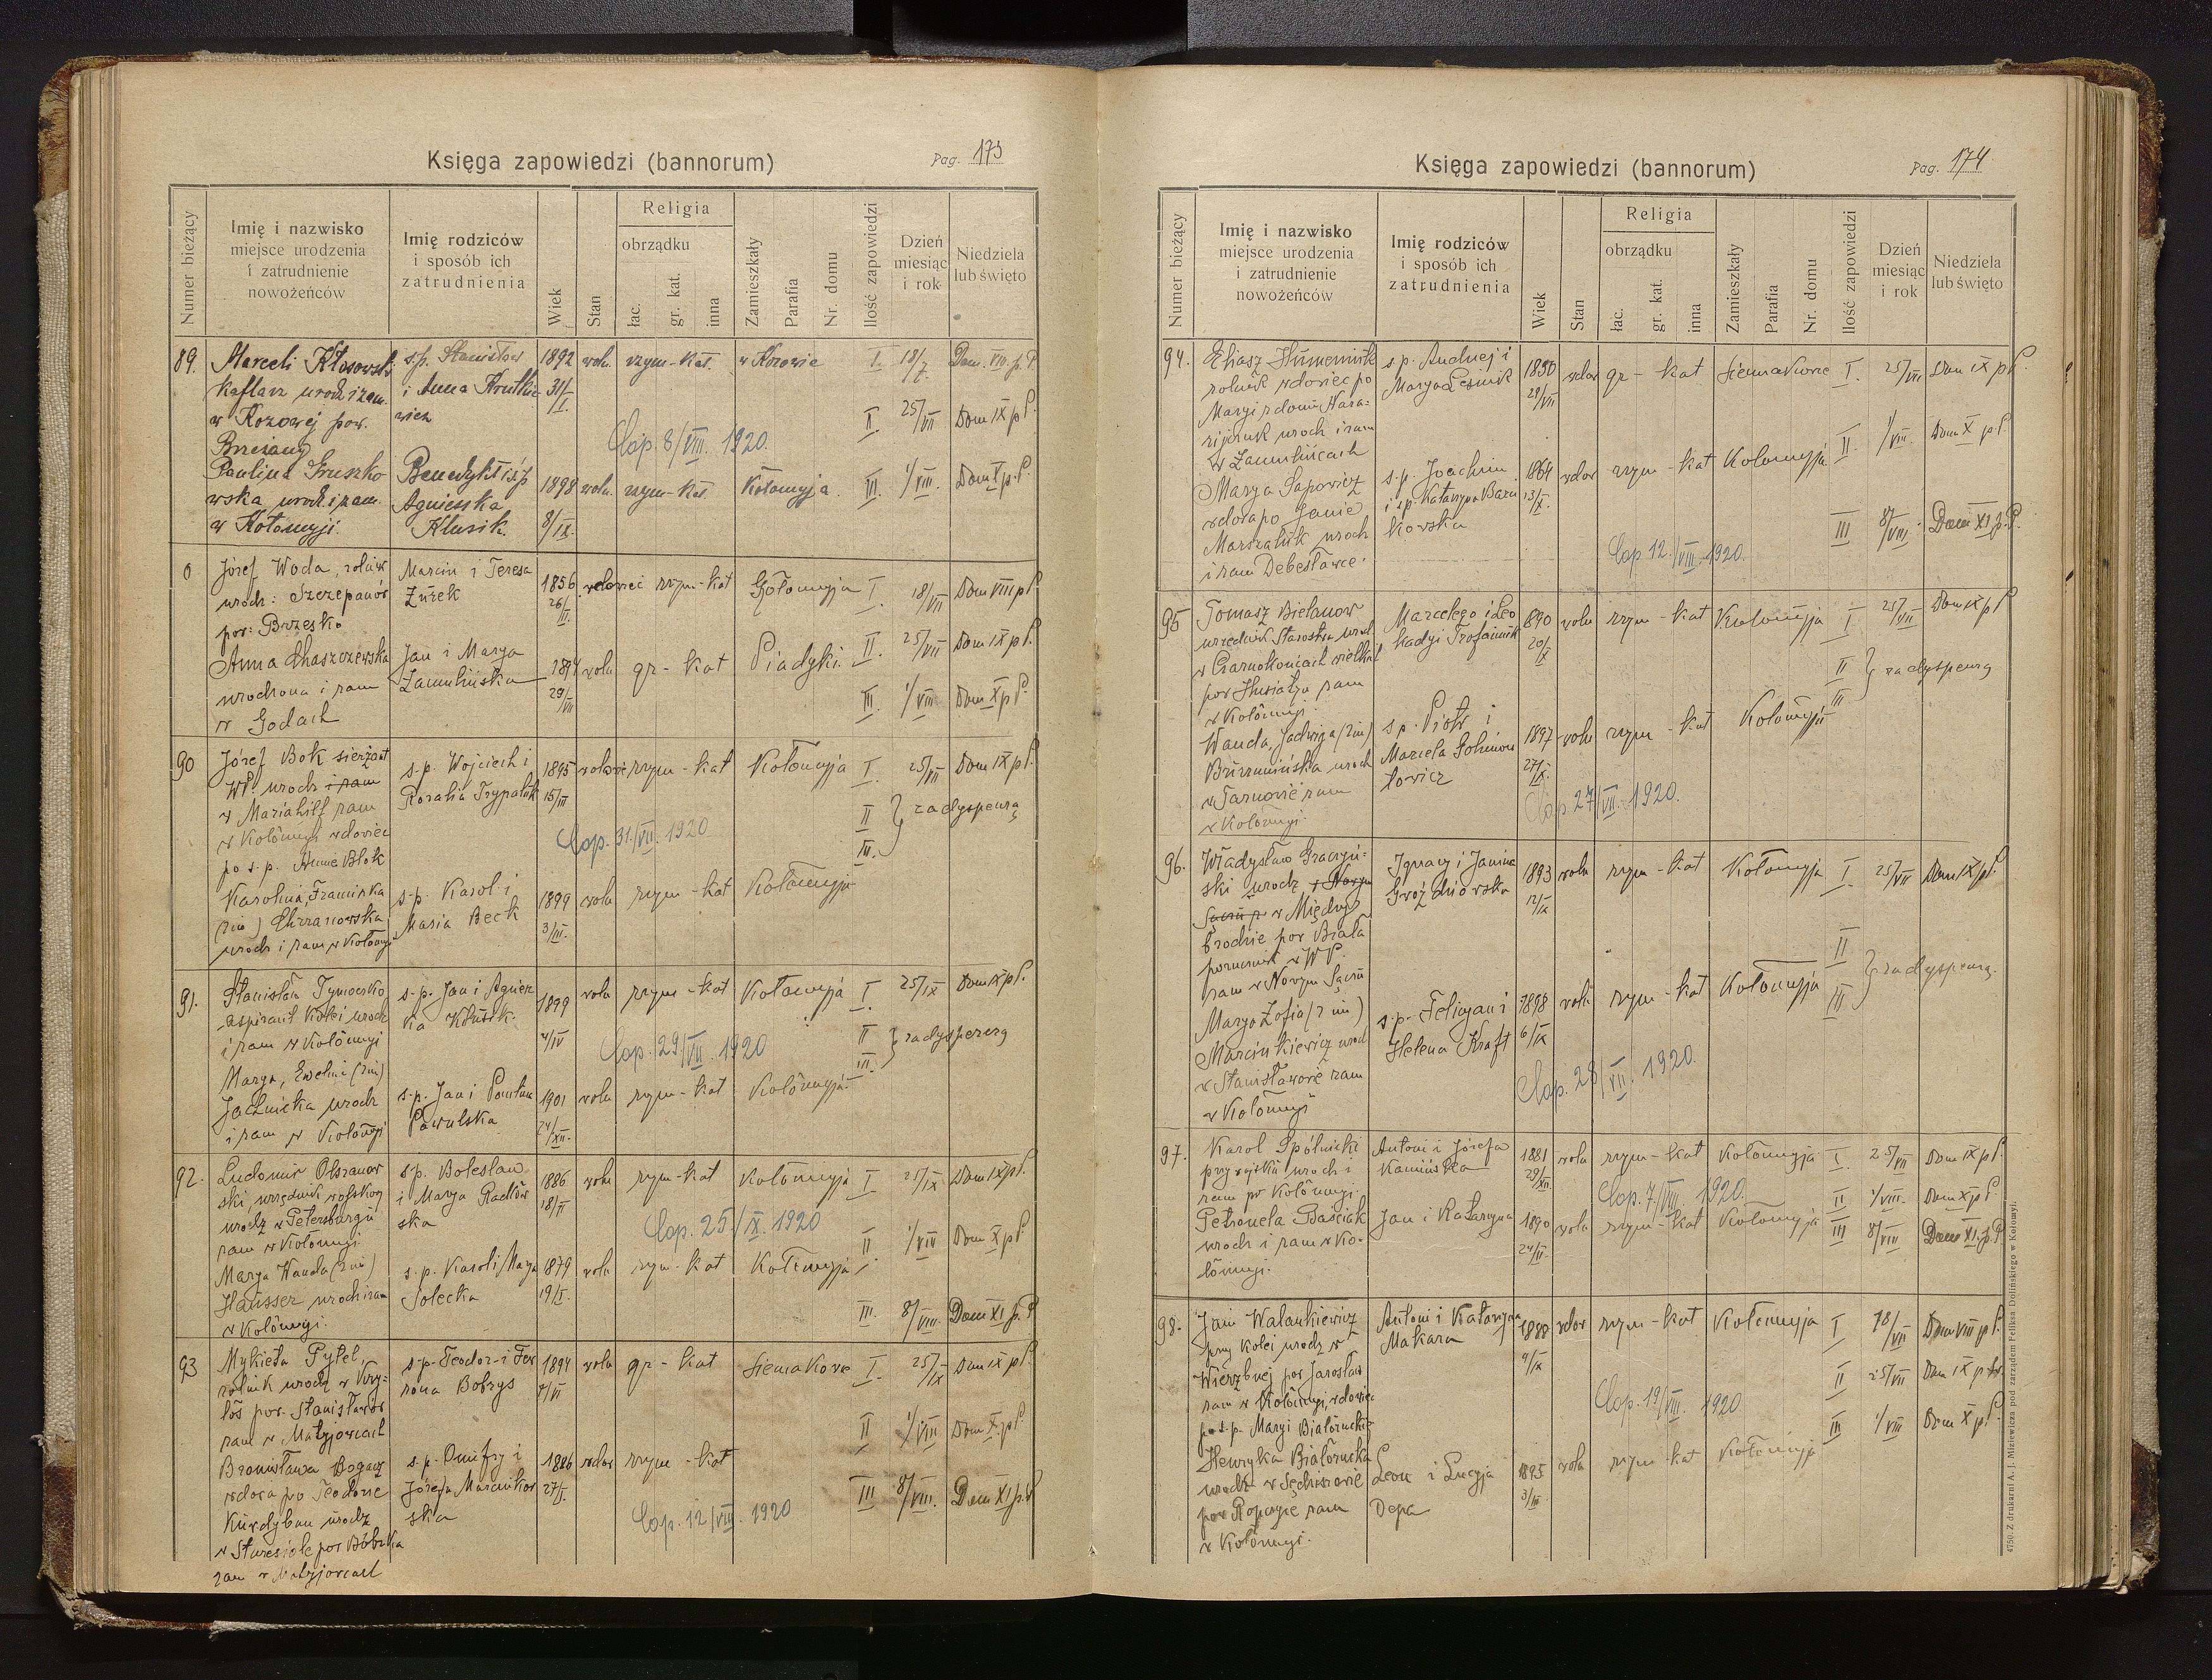 Księga zapowiedzi (bannorum)
Pag. 173
Numer bieżący
Imię i nazwisko
miejsce urodzenia
i zatrudnienie
nowożeńców
Imię rodziców
i sposób ich
zatrudnienia
Wiek
Stan
Religia
obrządku
łac.
gr. kat.
inna
Zamieszkały
Parafia
Nr. domu
Ilość zapowiedzi
Dzień
miesiąc
i rok
Niedziela
lub święto
89. Marceli Kłosowski s.p. Stanisław 1892 woln. rzym-kat. w Kozowie I. 18/7. Dom. VIII. p. P.
Kaflarz urodz i zam. i Anna 31/I.
w Kozowej pow.
Brzeżany
II. 25/VII Dom IX p P.
Cop. 8/VIII. 1920.
Paulina Gruszko Benedykt i s.p. 1898 woln. rzym-kat. Kołomyja. III. 1/VIII. Dom X p. P.
wska urodz. i zam. Agnieszka 8/IX.
w Kołomyji. Klusik.
0 Józef Woda, rolnik Marcin i Teresa 1856 wdowiec rzym-kat Kołomyja I. 18/VII Dom VIII p P
urodz: Szczepanów Żurek 26/III.
pow: Brzesko
II. 25/VII Dom IX p P.
Anna Chaszczewska Jan i Marya 1894 woln gr-kat Piadyki
urodzona i zam 29/VII
w Godach
III. 1/VIII Dom X p P.
90 Józef Bok sierżant s.p. Wojciech i 1895 rzym-kat Kołomyja I. 25/VII Dom IX p P.
WP. urodz i zam Rozalia Trypaluk 15/III
w Mariahilf zam II } za dyspensą
w Kołomyji wdowiec Cop. 31./VII. 1920 III.
po s.p. Annie Blok
Karolina, Franciszka s.p. Karol i 1899 wolna rzym-kat Kołomyja
(2 im) Chrzanowska Maria Beck 3/III.
urodz i zam w Kołomyi
91. Stanisław s.p. Jan i Agniesz 1899 woln rzym-kat Kołomyja I. 25/IX Dom IX p P.
aspirant Kolei urodz ka Klusik. 4/IV
i zam w Kołomyji Cop. 29/VII. 1920 II } za dyspensą
Marya, Ewelina (2 im) III.
urodz s.p. Jan i Paulina 1901 woln rzym-kat Kołomyja
i zam w Kołomyji Pawulska 24/XII.
92. Ludomir Olszanow s.p. Bolesław 1886 woln rzym-kat Kołomyja I 25/IX Dom IX p P.
ski, urzędnik wojskowy i Marya Radków 18/II
urodz w Petersburgu ska Cop. 25/IX. 1920
zam w Kołomyji II 1/VIII Dom X p P.
Marya Wanda (2 im) s.p. Karol i Marya 1879 woln rzym-kat Kołomyja
Hausser urodz i zam Solecka 19/I.
w Kołomyji. III. 8/VIII. Dom XI p. P
93 Mykieta Pytel, s.p. Teodor i Fev 1894 woln gr-kat Siemakowce I. 25/IX Dom IX p P.
rolnik urodz w Kry- rona Bobrys 7/VI
łos pow. Stanisławów
zam w Matyjowcach II 1/VIII Dom X. p P
Bronisława Bogacz s.p. Onufry i 1886 wdow rzym-kat
wdowa po Teodorze Józefa Marcinkow 27/I. III 8/VIII. Dom XI p. P
Kurdyban urodz ska Cop. 12/VIII. 1920
w Staresiole pow Bóbrka
zam w Matyjowcach
Księga zapowiedzi (bannorum)
Pag. 174
Numer bieżący
Imię i nazwisko
miejsce urodzenia
i zatrudnienie
nowożeńców
Imię rodziców
i sposób ich
zatrudnienia
Wiek
Stan
Religia
obrządku
łac.
gr. kat.
inna
Zamieszkały
Parafia
Nr. domu
Ilość zapowiedzi
Dzień
miesiąc
i rok
Niedziela
lub święto
94. Eliasz s.p. Andrzej i wdow gr-kat Siemakowce I. 25/VII Dom IX p P.
rolnik wdowiec po Marya Leśnik 29/VII
Maryi z domu
urodz i zam II 1/VIII. Dom X p P.
Marya Sapowicz s.p. Joachim 1864 wdow rzym-kat Kołomyja
wdowa po Janie i s.p. Katarzyna 13/X.
Marszaluk urodz kowska III 8/VIII. Dom XI. p. P.
i zam Debesławce. Cop. 12./VIII. 1920.
95 Tomasz Bielanow Marcelego i Leo 1890 woln rzym-kat Kołomyja I 25/VII Dom IX p P
urzędnik Starostwa urodz kadyi Trofaniuk 20/IX
w Czarnokońcach wielkich II } za dyspensą
pow Husiatyn zam III
w Kołomyji.
Wanda, Jadwiga (2 im) s.p. Piotr i 1897 woln rzym-kat Kołomyja
urodz Marcela 27/IX.
w Tarnowie zam towicz Cop. 27/VII. 1920.
w Kołomyji.
96. Władysław Graczyń- Ignacy i Janina 1893 woln rzym-kat Kołomyja I. 25/VII Dom IX p P.
ski urodz w Nowym Gwoździowska 12/IX
Sączu p w Między
brodzie pow Biała II } za dyspensą.
porucznik w WP. III
zam w Nowym Sączu
Marya Zofia (2 im) s.p. Felicyan i 1898 woln rzym-kat Kołomyja
Marcinkiewicz urodz Helena Kraft 6/IX
w Stanisławowie zam Cop. 28/VII. 1920.
w Kołomyji
97. Karol Spólnicki Antoni i Józefa 1881 woln rzym-kat Kołomyja I. 25/VII Dom IX p P.
urodz i Kamińska 29/XII.
zam w Kołomyji. Cop. 7/VIII. 1920. II 1/VIII. Dom X p P
Petronela Baściak Jan i Katarzyna 1890 woln rzym-kat Kołomyja III 8/VIII Dom XI. p. P
urodz i zam w Ko- 24/II.
łomyji.
98. Jan Walankiewicz Antoni i Katarzyna 1888 wdow rzym-kat Kołomyja I 18/VII Dom VIII p P.
przy kolei urodz w Makara 4/IX
Wierzbnej pow Jarosław II 25/VII Dom IX p św.
zam w Kołomyji, wdowiec Cop. 19/VIII. 1920
po s.p. Maryi III 1/VIII Dom X p P.
Henryka Leon i Łucyja 1895 woln rzym-kat Kołomyja
urodz w Sędziszowie Depa 3/III.
pow Ropczyce zam
w Kołomyji.
4750. Z drukarni A. J. Miziewicza pod zarządem Feliksa Dolińskiego w Kołomyi.